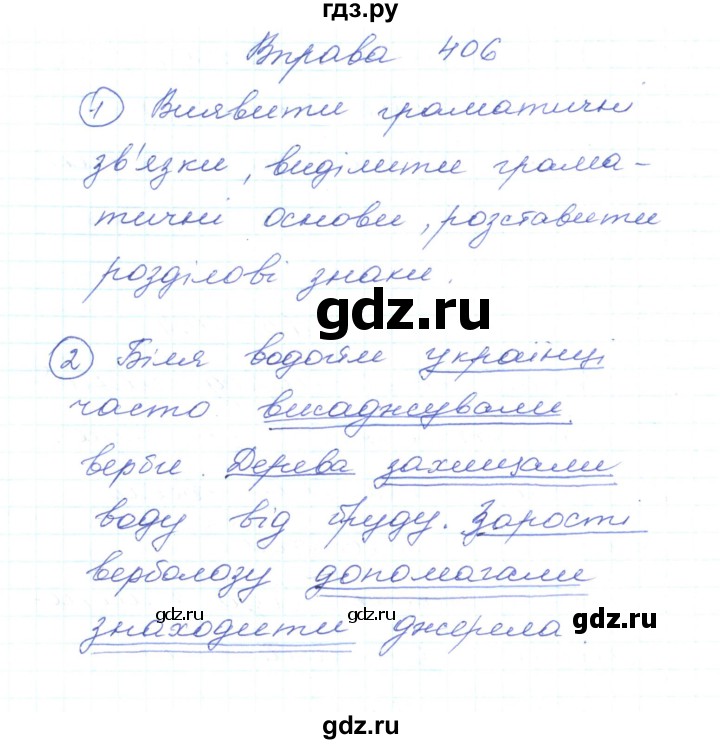 гдз.ру
Вправа 406
1 Виявити граматичні
зв'язки, виділити грама-
тичні основи, розставити
розділові знаки.
gdz.ru
2 Біля водойм українці
часто висаджували
верби. Дерева захищали
воду від бруду. Зарості
верболозу допомагали
gdz.ru gdz.ru
знаходити джерела
gdz.ru